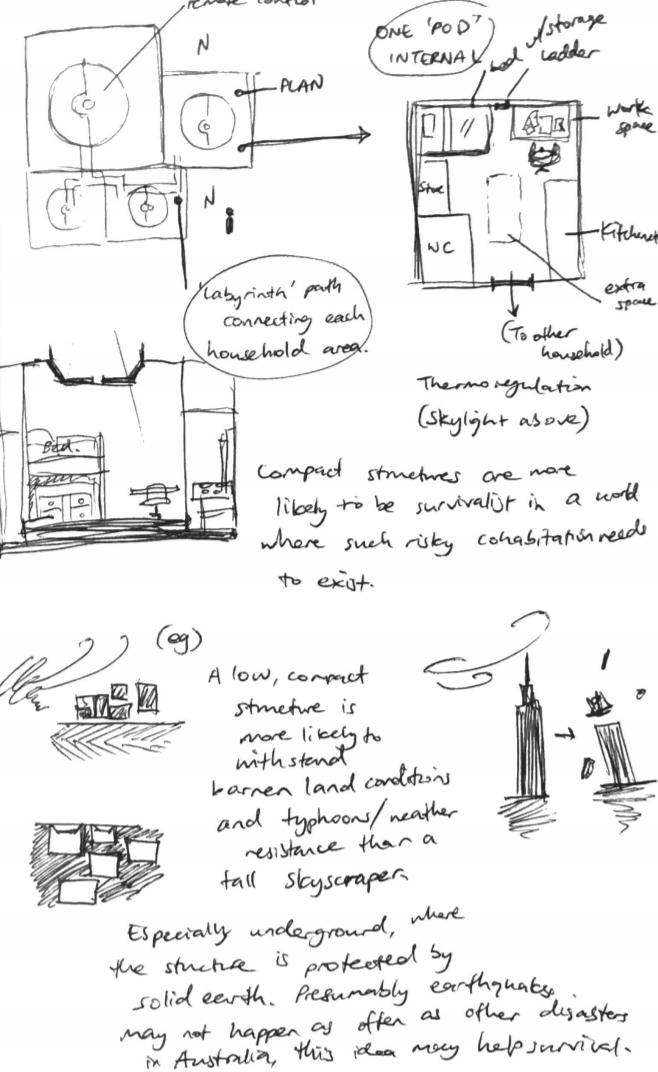 remote control
N
PLAN
N
'Labyrinth' path
connecting each
household area.
ONE 'POD'
INTERNAL
bed w/storage
ladder
work
space
Stor
WC
Kitchenet
extra
space
(To other
household)
Thermoregulation
(skylight above)
Bed.
Compact structures are more
likely to be survivalist in a world
where such risky cohabitation needs
to exist.
(eg)
A low, compact
structure is
more likely to
withstand
barren land conditions
and typhoons/weather
resistance than a
tall skyscraper.
Especially underground, where
the structure is protected by
solid earth. Presumably earthquakes
may not happen as often as other disasters
in Australia, this idea may help survival.